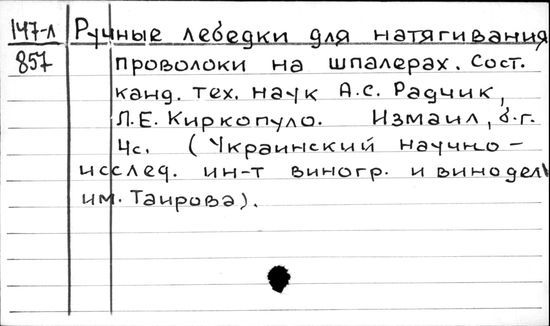 147-л Ручные лебедки для натягивания
857 проволоки на шпалерах. Сост.
канд. тех. наук А.С. Радчик,
Л.Е. Киркопуло. Измаил, б.г.
4с. (Украинский научно-
исслед. ин-т виногр. и винодел
им. Таирова).